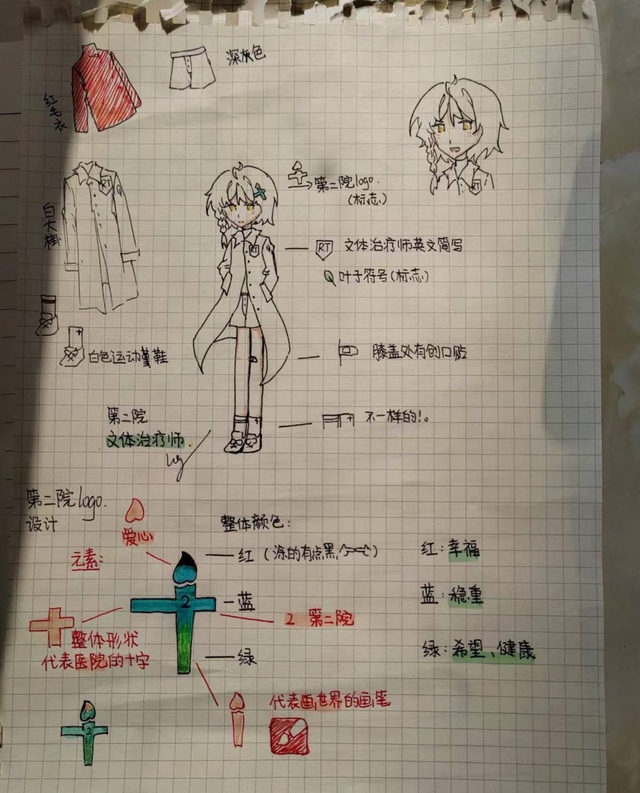 深灰色
红毛衣
白大褂
第二院logo.
(标志)
RT
文体治疗师英文简写
叶子符号(标志)
白色运动董鞋
膝盖处有创口贴
不一样的!。
第二院
文体治疗师.
第二院logo.
设计
爱心
整体颜色:
元素:
红(涂的有点黑
红:幸福
2
蓝
蓝:稳重
2 第二院
整体形状
代表医院的十字
绿
绿:希望、健康
代表画世界的画笔
2